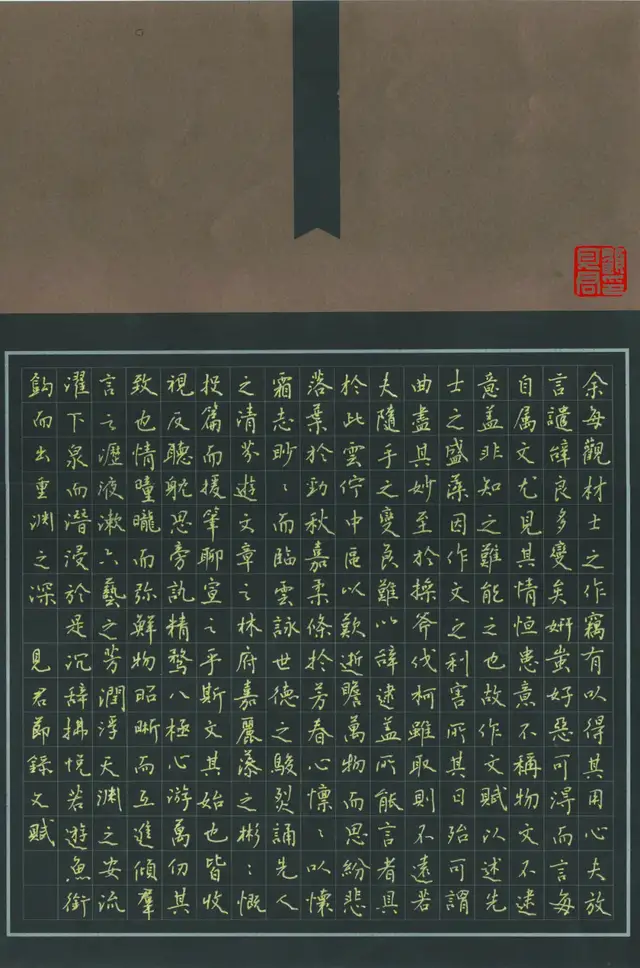 余每觀材士之作竊有以得其用心夫放
言譴辭良多變矣妍蚩好惡可得而言每
自属文尤見其情恒患意不稱物文不逮
意盖非知之難能之也故作文賦以述先
士之盛藻因作文之利害所其日殆可謂
曲盡其妙至於操斧伐柯雖取則不遠若
夫隨手之變良難以辞逮盖所能言者具
於此雲佇中區以歎逝瞻萬物而思紛悲
落葉於勁秋嘉柔條於芳春心懍々以懷
霜志眇々而臨雲詠世德之駿烈誦先人
之清芬遊文章之林府嘉麗藻之彬々慨
投篇而援筆聊宣之乎斯文其始也皆收
視反聽耽思旁訊精骛八極心游萬仞其
致也情曈曨而弥鮮物昭晰而互進傾羣
言之瀝液漱六藝之芳潤浮天淵之安流
濯下泉而潛浸於是沉辞拂悅若遊魚銜
鈎而出重淵之深 見君節錄文賦